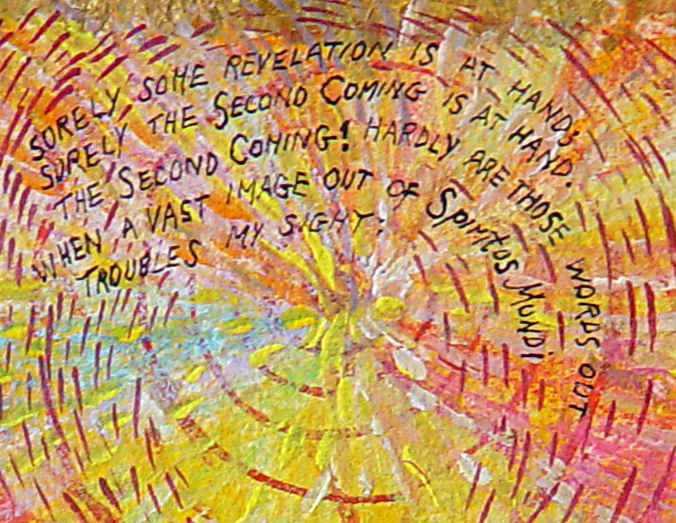 SURELY SOME REVELATION IS AT HAND;
SURELY THE SECOND COMING IS AT HAND.
THE SECOND COMING! HARDLY ARE THOSE WORDS OUT
WHEN A VAST IMAGE OUT OF SPIRITUS MUNDI
TROUBLES MY SIGHT: